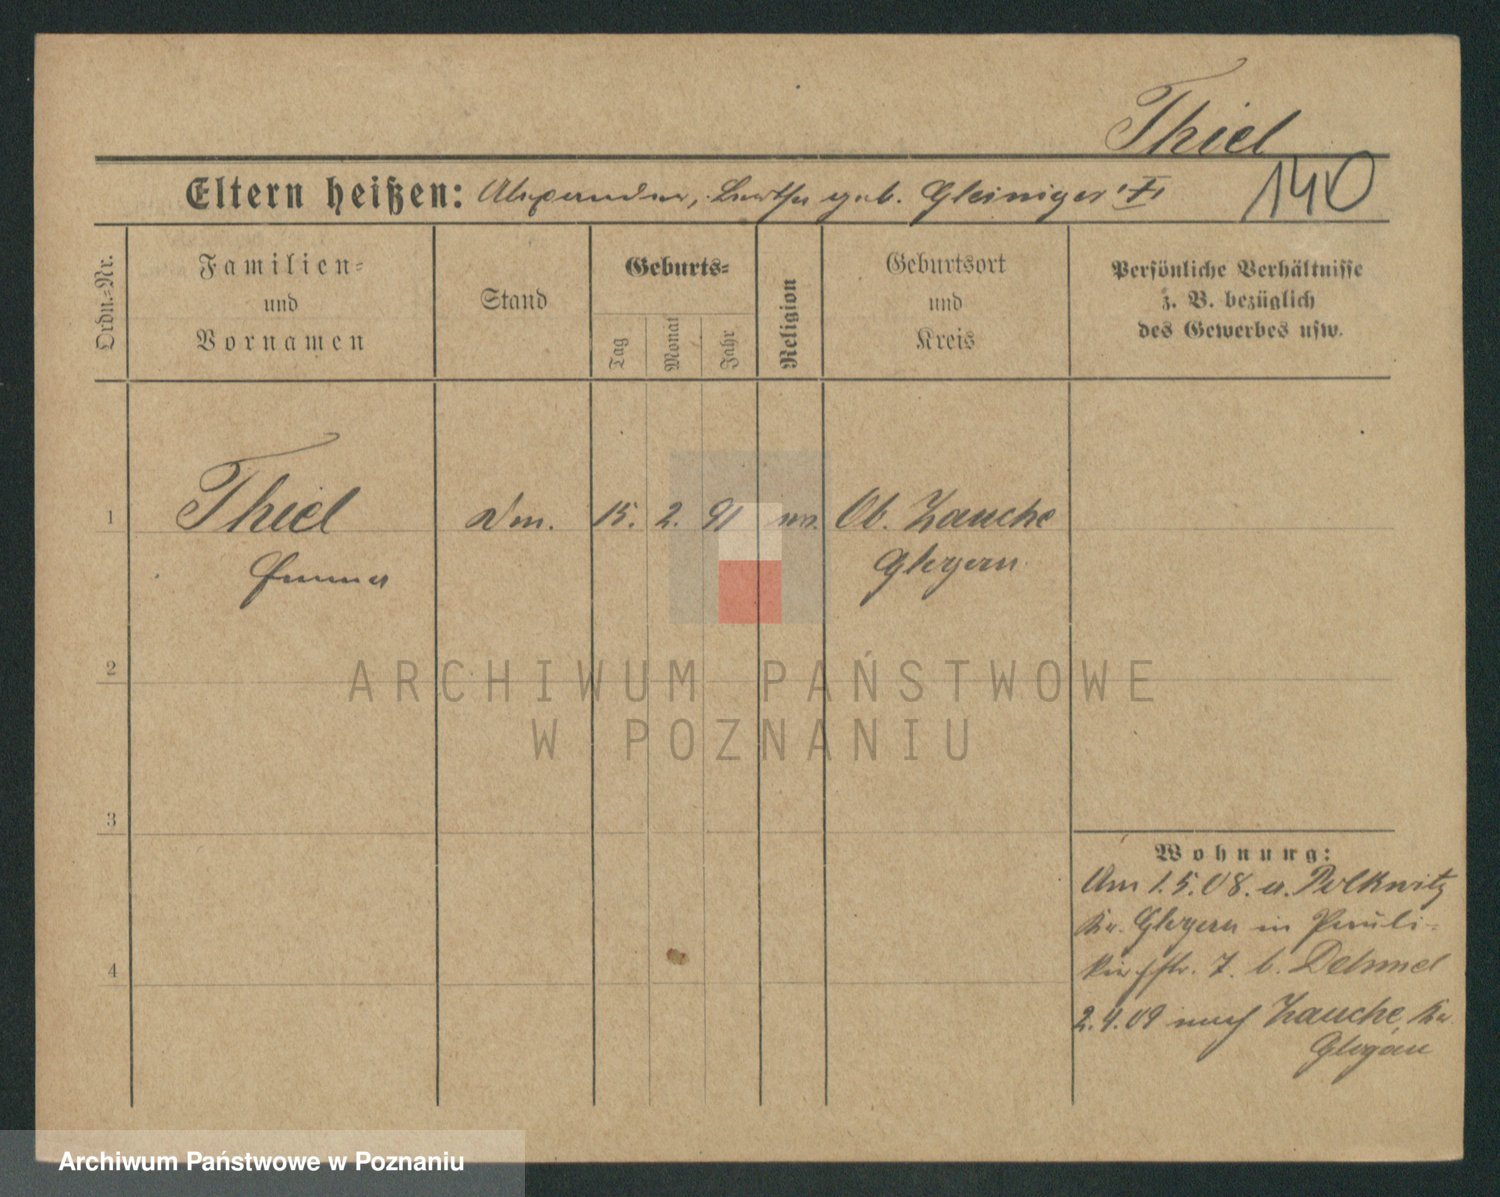 Thiel
Eltern heißen: Alexander, Bertha geb. Gleiniger
140
Ordn.=Nr.
Familien=
und
Vornamen
Stand
Geburts=
Tag
Monat
Jahr
Religion
Geburtsort
und
Kreis
Persönliche Verhältnisse
z. B. bezüglich
des Gewerbes usw.
1
Thiel
15. 2. 91
Ob. Zauche
Emma
Glogau
2
ARCHIWUM PAŃSTWOWE
W POZNANIU
3
4
Wohnung:
Am 1.5.08. a. Polkwitz
Kr. Glogau in Pauli=
kirchstr. 7. b. Dehmel
2.4.09 nach Zauche, Kr
Glogau
Archiwum Państwowe w Poznaniu